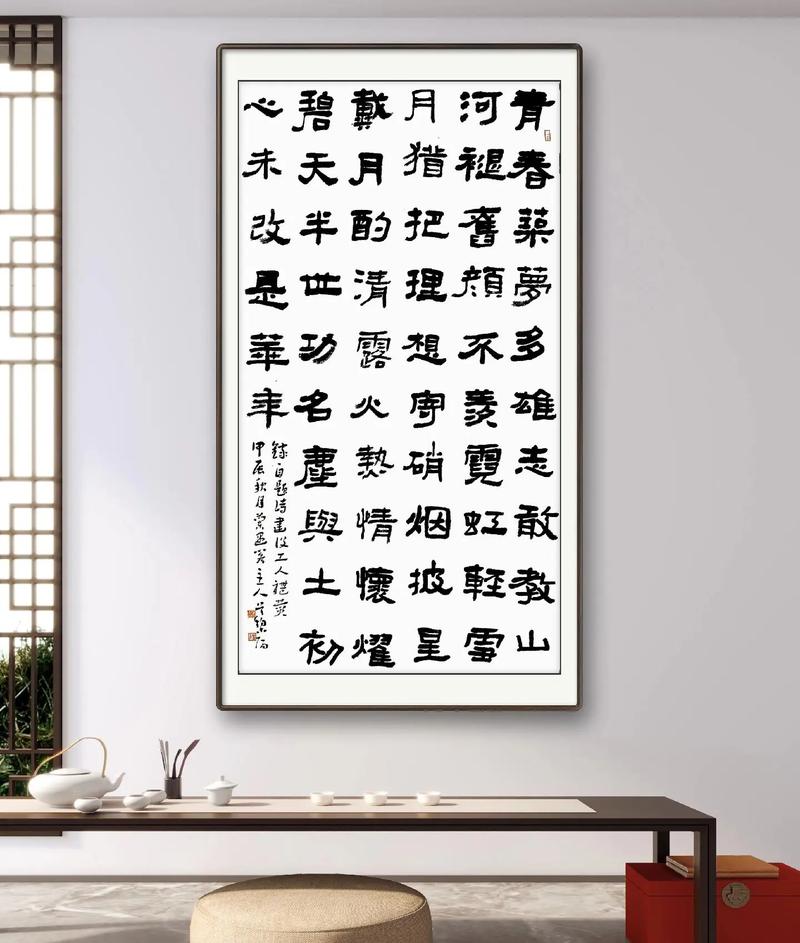 青春築夢多雄志敢教山
河褪舊顔不羨霓虹輕雪
月猶把理想寄硝烟披星
戴月酌清露火熱情懷耀
碧天半世功名塵與土初
心未改是華年
錄自題詩建设工人禮赞
甲辰秋月主人